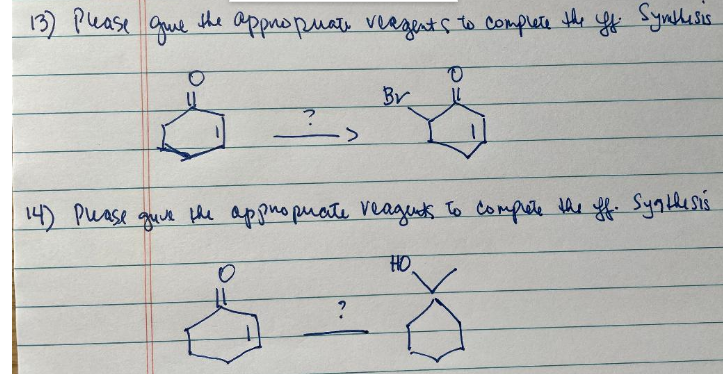 13) Please give the appropriate reagents to complete the ff. Synthesis
O
O
Br
?
14) Please give the appropriate reagents to complete the ff. Synthesis
O
HO
?